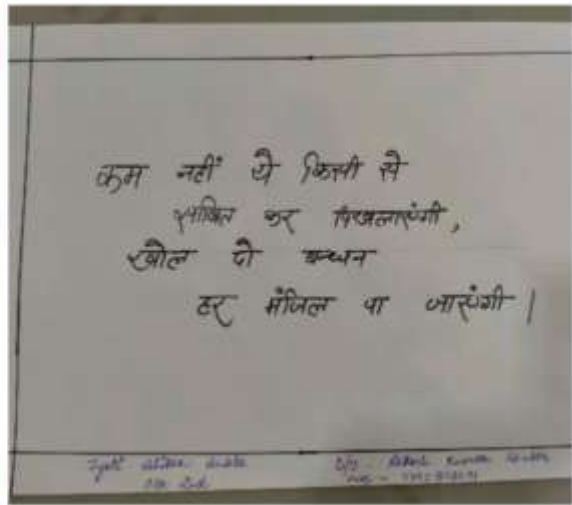 कम नहीं ये किसी से
साबित कर दिखलाएंगी,
खोल दो बन्धन
हर मंजिल पा जाएंगी।
Jyoti